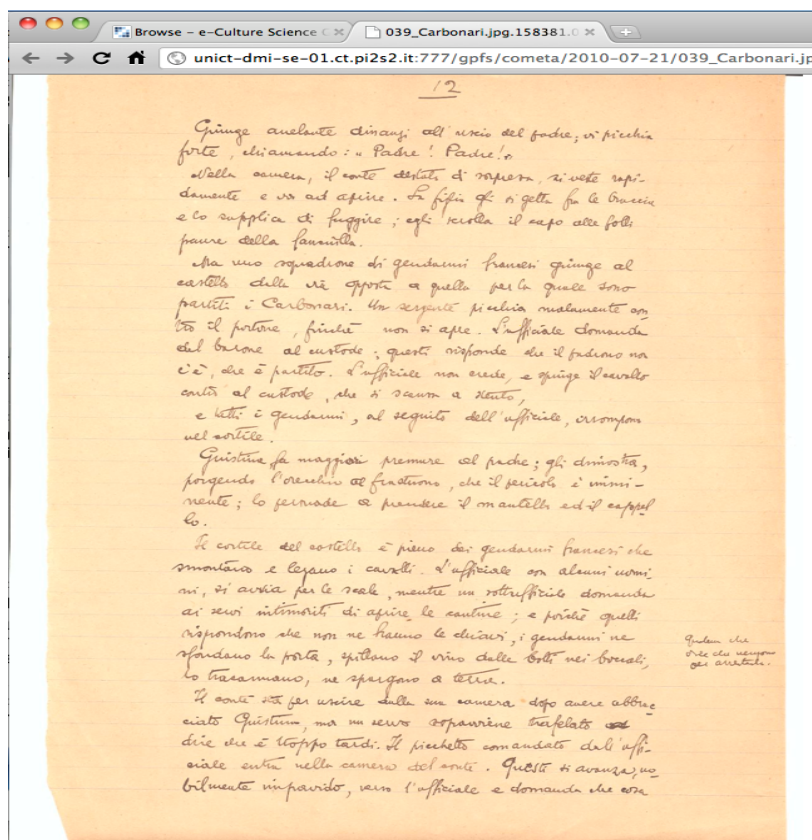 Browse – e-Culture Science G
039_Carbonari.jpg.158381.0
unict-dmi-se-01.ct.pi2s2.it:777/gpfs/cometa/2010-07-21/039_Carbonari.jp
12
Giunge anelante dinanzi all'uscio del padre; vi picchia
forte, chiamando: « Padre! Padre!»
Nella camera, il conte destato di sorpresa, si veste rapi-
damente e va ad aprire. La figlia gli si getta fra le braccia
e lo supplica di fuggire; egli scrolla il capo alle folli
paure della fanciulla.
Ma uno squadrone di gendarmi francesi giunge al
castello dalla via opposta a quella per la quale sono
partiti i Carbonari. Un sergente picchia malamente con
tro il portone, finchè non si apre. L'ufficiale domanda
del barone al custode; questi risponde che il padrone non
c'è, che è partito. L'ufficiale non crede, e spinge il cavallo
contro al custode, che si scansa a stento,
e tutti i gendarmi, al seguito dell'ufficiale, irrompono
nel cortile.
Giustina fa maggiori premure al padre; gli dimostra,
porgendo l'orecchio al frastuono, che il pericolo è immi-
nente; lo persuade a prendere il mantello ed il cappel
lo.
Il cortile del castello è pieno dei gendarmi francesi che
smontano e legano i cavalli. L'ufficiale con alcuni uomi
ni, si avvia per le scale, mentre un sottufficiale domanda
ai servi intimoriti di aprire le cantine; e poichè quelli
rispondono che non ne hanno le chiavi, i gendarmi ne
sfondano la porta, spillano il vino dalle botti nei boccali,
lo tracannano, ne spargono a terra.
che
che vengono
per arrestarlo.
Il conte sta per uscire dalla sua camera dopo avere abbrac
ciato Giustina, ma un servo sopravviene trafelato a
dire che è troppo tardi. Il picchetto comandato dall'uffi-
ciale entra nella camera del conte. Questi si avanza, no
bilmente impavido, verso l'ufficiale e domanda che cosa